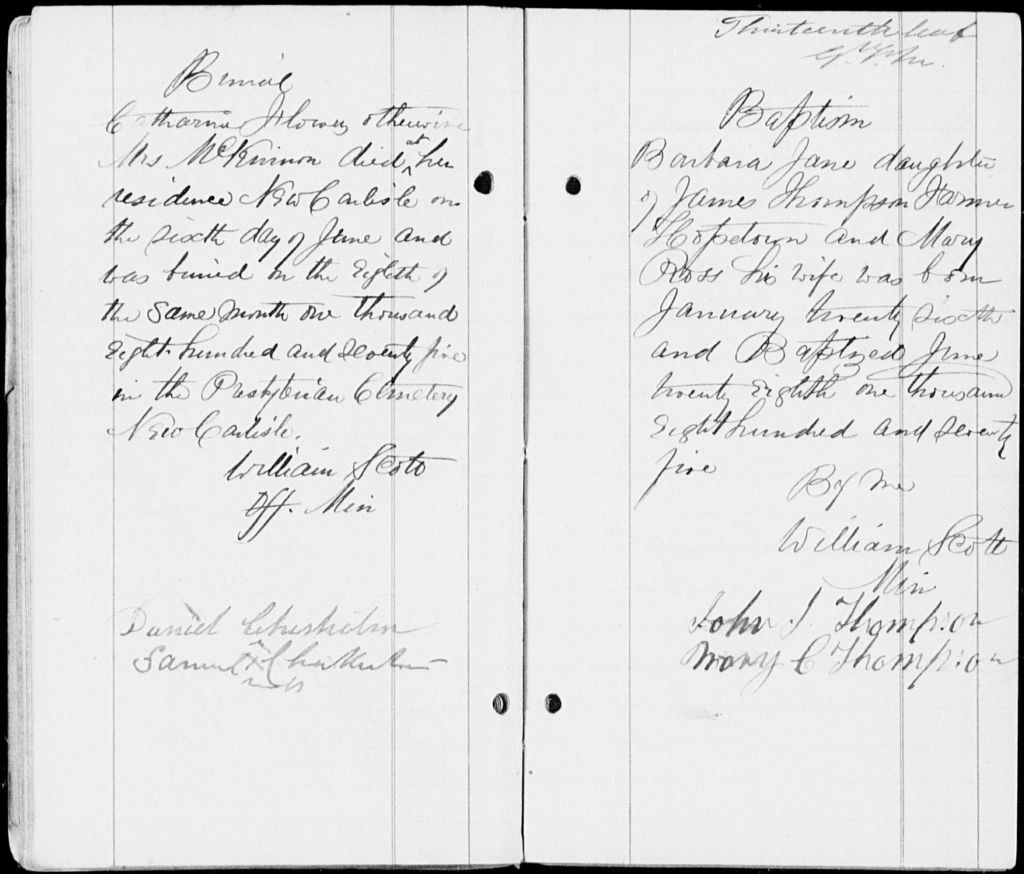 Burial
Catharine Flowers otherwise
Mrs McKinnon died at her
residence New Carlisle on
the sixth day of June and
was buried on the Eighth of
the same month one thousand
Eight hundred and Seventy five
in the Presbyterian Cemetery
New Carlisle.
William Scott
Off. Min
Daniel Chisholm
Samuel X
Thirteenth leaf
Baptism
Barbara Jane daughter
of James Thompson Farmer
Hopetown and Mary
Ross his wife was born
January twenty sixth
and Baptized June
twenty Eighth one thousand
Eight hundred and Seventy
five
By me
William Scott
Min
John J. Thompson
Mary C Thompson